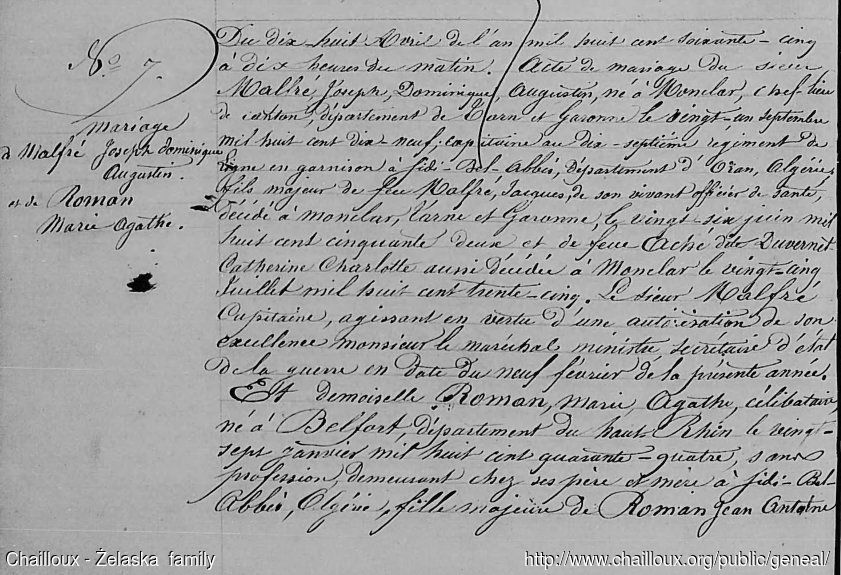 N.o 7.
Mariage
de Malfré Joseph Dominique
Augustin.
et de Roman
Marie Agathe.
Du dix-huit Avril de l'an mil huit cent soixante-cinq
à dix heures du matin. Acte de mariage du sieur
Malfré, Joseph, Dominique, Augustin, né à Monclar, chef-lieu
de canton, département de Tarn et Garonne le vingt-un septembre
mil huit cent dix-neuf, capitaine au dix-septième régiment de
ligne en garnison à Sidi-Bel-Abbès, département d'Oran, Algérie,
fils majeur de feu Malfré, Jacques, de son vivant officier de santé,
décédé à Monclar, Tarne et Garonne, le vingt-six juin mil
huit cent cinquante deux et de feue Aché dite Duvernet
Catherine Charlotte aussi décédée à Monclar le vingt-cinq
Juillet mil huit cent trente-cinq. Le sieur Malfré
Capitaine, agissant en vertu d'une autorisation de son
excellence monsieur le maréchal ministre, secrétaire d'état
de la guerre en date du neuf février de la présente année.
Et demoiselle Roman, Marie Agathe, célibataire,
né à Belfort, département du haut-Rhin le vingt-
sept janvier mil huit cent quarante-quatre, sans
profession, demeurant chez ses père et mère à Sidi-Bel-
Abbès, Algérie, fille majeure de Roman Jean Antoine
Chailloux - Żelaska family
http://www.chailloux.org/public/geneal/